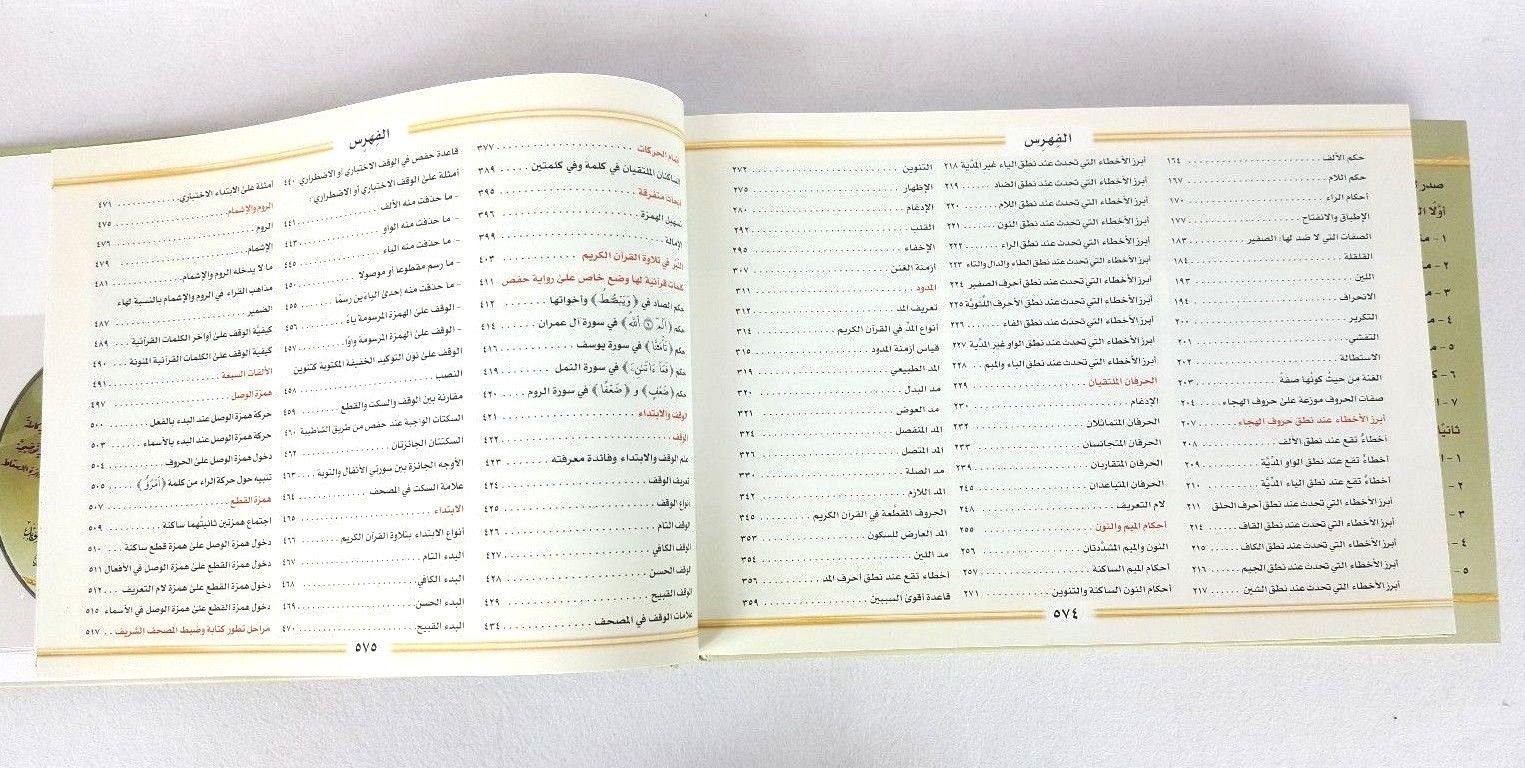 الفهرس
حكم الألف ١٦٤
حكم اللام ١٦٧
أحكام الراء ١٧٠
الإطباق والانفتاح ١٧٧
الصفات التي لا ضد لها: الصفير ١٨٣
القلقلة ١٨٤
اللين ١٩٣
الانحراف ١٩٤
التكرير ٢٠٠
التفشي ٢٠١
الاستطالة ٢٠٢
الغنة من حيث كونها صفة ٢٠٣
صفات الحروف موزعة على حروف الهجاء ٢٠٤
أبرز الأخطاء عند نطق حروف الهجاء ٢٠٧
أخطاءٌ تقع عند نطق الألف ٢٠٨
أخطاءٌ تقع عند نطق الواو المدِّيَّة ٢٠٩
أخطاءٌ تقع عند نطق الياء المدِّيَّة ٢١٠
أبرز الأخطاء التي تحدث عند نطق أحرف الحلق ٢١١
أبرز الأخطاء التي تحدث عند نطق القاف ٢١٤
أبرز الأخطاء التي تحدث عند نطق الكاف ٢١٥
أبرز الأخطاء التي تحدث عند نطق الجيم ٢١٦
أبرز الأخطاء التي تحدث عند نطق الشين ٢١٧
أبرز الأخطاء التي تحدث عند نطق الياء غير المدِّية ٢١٨
أبرز الأخطاء التي تحدث عند نطق الضاد ٢١٩
أبرز الأخطاء التي تحدث عند نطق اللام ٢٢٠
أبرز الأخطاء التي تحدث عند نطق النون ٢٢١
أبرز الأخطاء التي تحدث عند نطق الراء ٢٢٢
أبرز الأخطاء التي تحدث عند نطق الطاء والدال والتاء ٢٢٣
أبرز الأخطاء التي تحدث عند نطق أحرف الصفير ٢٢٤
أبرز الأخطاء التي تحدث عند نطق الأحرف اللِّثويَّة ٢٢٥
أبرز الأخطاء التي تحدث عند نطق الفاء ٢٢٦
أبرز الأخطاء التي تحدث عند نطق الواو غير المدِّية ٢٢٧
أبرز الأخطاء التي تحدث عند نطق الباء والميم ٢٢٨
الحرفان الملتقيان ٢٢٩
الإدغام ٢٣٠
الحرفان المتماثلان ٢٣٢
الحرفان المتجانسان ٢٣٣
الحرفان المتقاربان ٢٣٩
الحرفان المتباعدان ٢٤٥
لام التعريف ٢٤٨
أحكام الميم والنون ٢٥٥
النون والميم المشدَّدتان ٢٥٦
أحكام الميم الساكنة ٢٥٧
أحكام النون الساكنة والتنوين ٢٧١
التنوين ٢٧٢
الإظهار ٢٧٥
الإدغام ٢٨٠
القلب ٢٩٢
الإخفاء ٢٩٥
أزمنة الغنن ٣٠٧
المدود ٣١١
تعريف المد ٣١٢
أنواع المدّ في القرآن الكريم ٣١٤
قياس أزمنة المدود ٣١٥
المد الطبيعي ٣١٩
مد البدل ٣٢٠
مد العوض ٣٢١
المد المنفصل ٣٢٤
المد المتصل ٣٢٦
مد الصلة ٣٣٠
المد اللازم ٣٤٢
الحروف المقطَّعة في القرآن الكريم ٣٤٥
المد العارض للسكون ٣٥٣
مد اللين ٣٥٤
أخطاء تقع عند نطق أحرف المد ٣٥٦
قاعدة أقوى السببين ٣٥٩
٥٧٤
الفهرس
إتمام الحركات ٣٧٧
الساكنان الملتقيان في كلمة وفي كلمتين ٣٨٩
أبحاث متفرقة ٣٩٥
تسهيل الهمزة ٣٩٦
الإمالة ٣٩٩
النَّبْر في تلاوة القرآن الكريم ٤٠٣
كلمات قرآنية لها وضع خاص على رواية حفص ٤١١
حكم الصاد في ﴿وَيَبْصُۜطُ﴾ وأخواتها ٤١٢
حكم ﴿الٓمٓ ۝١ ٱللَّهُ﴾ في سورة آل عمران ٤١٤
حكم ﴿تَأْمَ۫نَّا﴾ في سورة يوسف ٤١٦
حكم ﴿فَمَآ ءَاتَىٰنِۦَ﴾ في سورة النمل ٤١٩
حكم ﴿ضَعْفٍ﴾ و ﴿ضَعْفًا﴾ في سورة الروم ٤٢٠
الوقف والابتداء ٤٢١
الوقف ٤٢٢
علم الوقف والابتداء وفائدة معرفته ٤٢٣
تعريف الوقف ٤٢٤
أنواع الوقف ٤٢٥
الوقف التام ٤٢٦
الوقف الكافي ٤٢٧
الوقف الحسن ٤٢٨
الوقف القبيح ٤٢٩
علامات الوقف في المصحف ٤٣٤
قاعدة حفص في الوقف الاختباري أو الاضطراري ٤٤٠
أمثلة على الوقف الاختباري أو الاضطراري:
- ما حذفت منه الألف ٤٤١
- ما حذفت منه الواو ٤٤٣
- ما حذفت منه الياء ٤٤٥
- ما رسم مقطوعا أو موصولا ٤٥٠
- ما حذفت منه إحدى الياءين رسمًا ٤٥٥
- الوقف على الهمزة المرسومة ياءً ٤٥٦
- الوقف على الهمزة المرسومة واوًا ٤٥٧
الوقف على نون التوكيد الخفيفة المكتوبة كتنوين
النصب ٤٥٨
مقارنة بين الوقف والسكت والقطع ٤٥٩
السكتات الواجبة عند حفص من طريق الشاطبية ٤٦٠
السكتتان الجائزتان ٤٦٢
الأوجه الجائزة بين سورتي الأنفال والتوبة ٤٦٣
علامة السكت في المصحف ٤٦٤
الابتداء ٤٦٥
أنواع الابتداء بتلاوة القرآن الكريم ٤٦٦
البدء التام ٤٦٧
البدء الكافي ٤٦٨
البدء الحسن ٤٦٩
البدء القبيح ٤٧٠
أمثلة على الابتداء الاختباري ٤٧١
الروم والإشمام ٤٧٥
الروم ٤٧٦
الإشمام ٤٧٩
ما لا يدخله الروم والإشمام ٤٨١
مذاهب القراء في الروم والإشمام بالنسبة لهاء
الضمير ٤٨٧
كيفيَّة الوقف على أواخر الكلمات القرآنية ٤٨٩
كيفية الوقف على الكلمات القرآنية المنونة ٤٩٠
الألفات السبعة ٤٩١
همزة الوصل ٤٩٧
حركة همزة الوصل عند البدء بالفعل ٥٠٠
حركة همزة الوصل عند البدء بالأسماء ٥٠٣
دخول همزة الوصل على الحروف ٥٠٤
تنبيه حول حركة الراء من كلمة ﴿ٱمْرُؤٌا۟﴾ ٥٠٥
همزة القطع ٥٠٧
اجتماع همزتين ثانيتُهما ساكنة ٥٠٩
دخول همزة الوصل على همزة قطع ساكنة ٥١٠
دخول همزة القطع على همزة الوصل في الأفعال ٥١١
دخول همزة القطع على همزة لام التعريف ٥١٢
دخول همزة القطع على همزة الوصل في الأسماء ٥١٥
مراحل تطور كتابة وضبط المصحف الشريف ٥١٧
٥٧٥